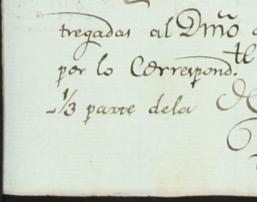 tregadas al Dmõ
por lo Correspond.te
1/3 parte dela